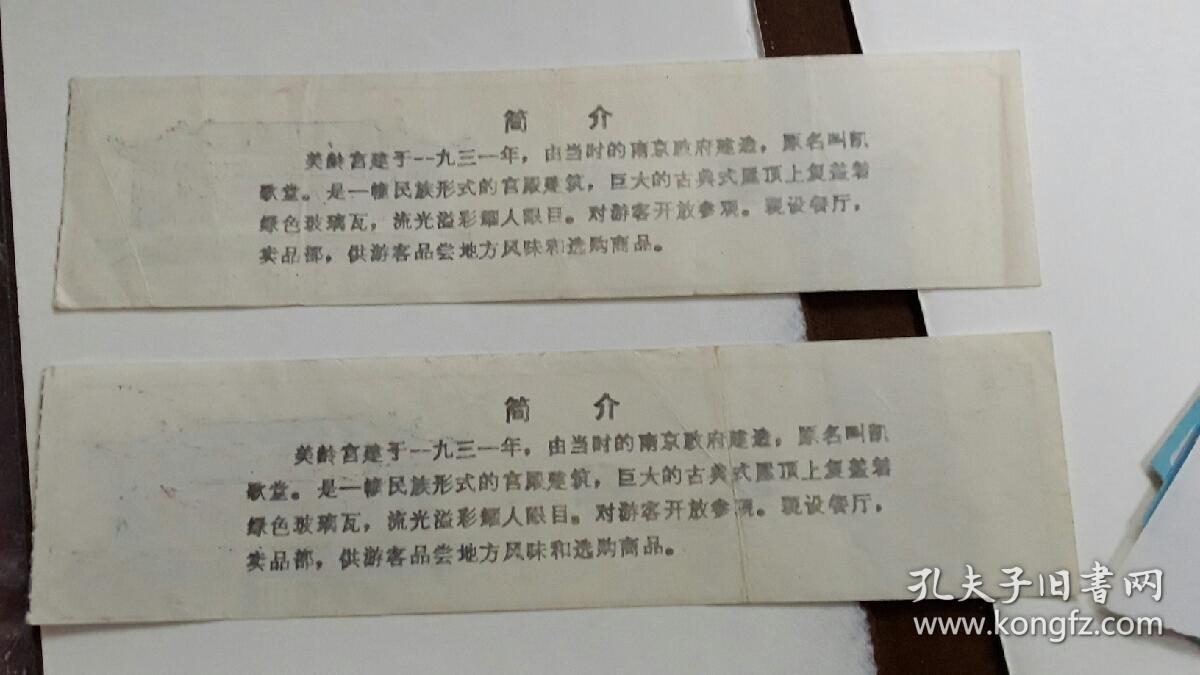 简 介
美龄宫建于一九三一年，由当时的南京政府建造，原名叫凯
歌堂。是一幢民族形式的宫殿建筑，巨大的古典式屋顶上复盖着
绿色玻璃瓦，流光溢彩耀人眼目。对游客开放参观。现设餐厅，
卖品部，供游客品尝地方风味和选购商品。
简 介
美龄宫建于一九三一年，由当时的南京政府建造，原名叫凯
歌堂。是一幢民族形式的宫殿建筑，巨大的古典式屋顶上复盖着
绿色玻璃瓦，流光溢彩耀人眼目。对游客开放参观。现设餐厅，
卖品部，供游客品尝地方风味和选购商品。
孔夫子旧書网
www.kongfz.com